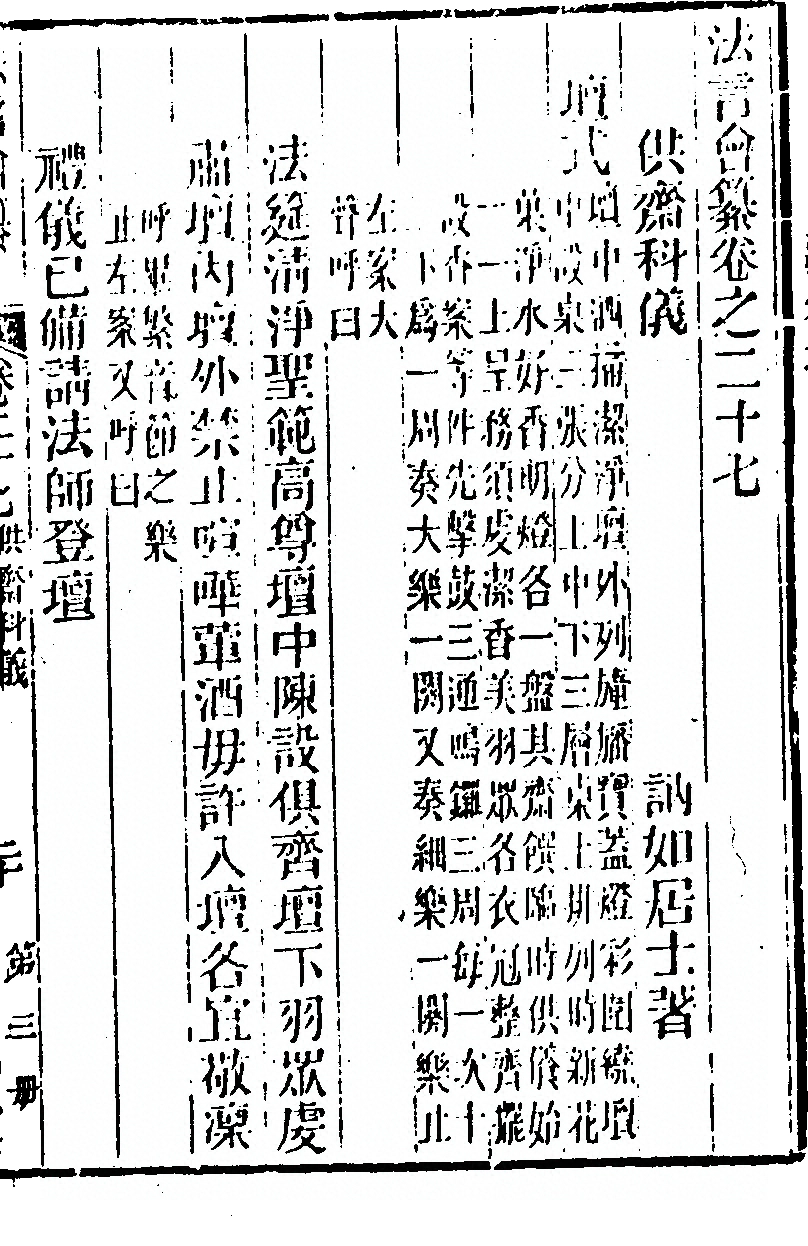 法言會纂卷之二十七
供齋科儀　訥如居士著
壇式
壇中洒掃潔淨壇外列幢旛寶蓋燈彩圍繞壇
中設桌三張分上中下三層桌上排列時新花
菓淨水好香明燈各一盤其齋饌臨時供儀始
一一上呈務須虔潔香美羽眾各衣冠整齊擺
設香案等件先擊鼓三通鳴鑼三周每一次十
二下爲一周奏大樂一闋又奏細樂一闋樂止
左案大
聲呼曰
法筵清淨聖範高尊壇中陳設俱齊壇下羽眾虔
肅壇內壇外禁止喧嘩葷酒毋許入壇各宜敬凜
呼畢繁音節之樂
止左案又呼曰
禮儀已備請法師登壇
卷二十七
供齋科儀
第三册